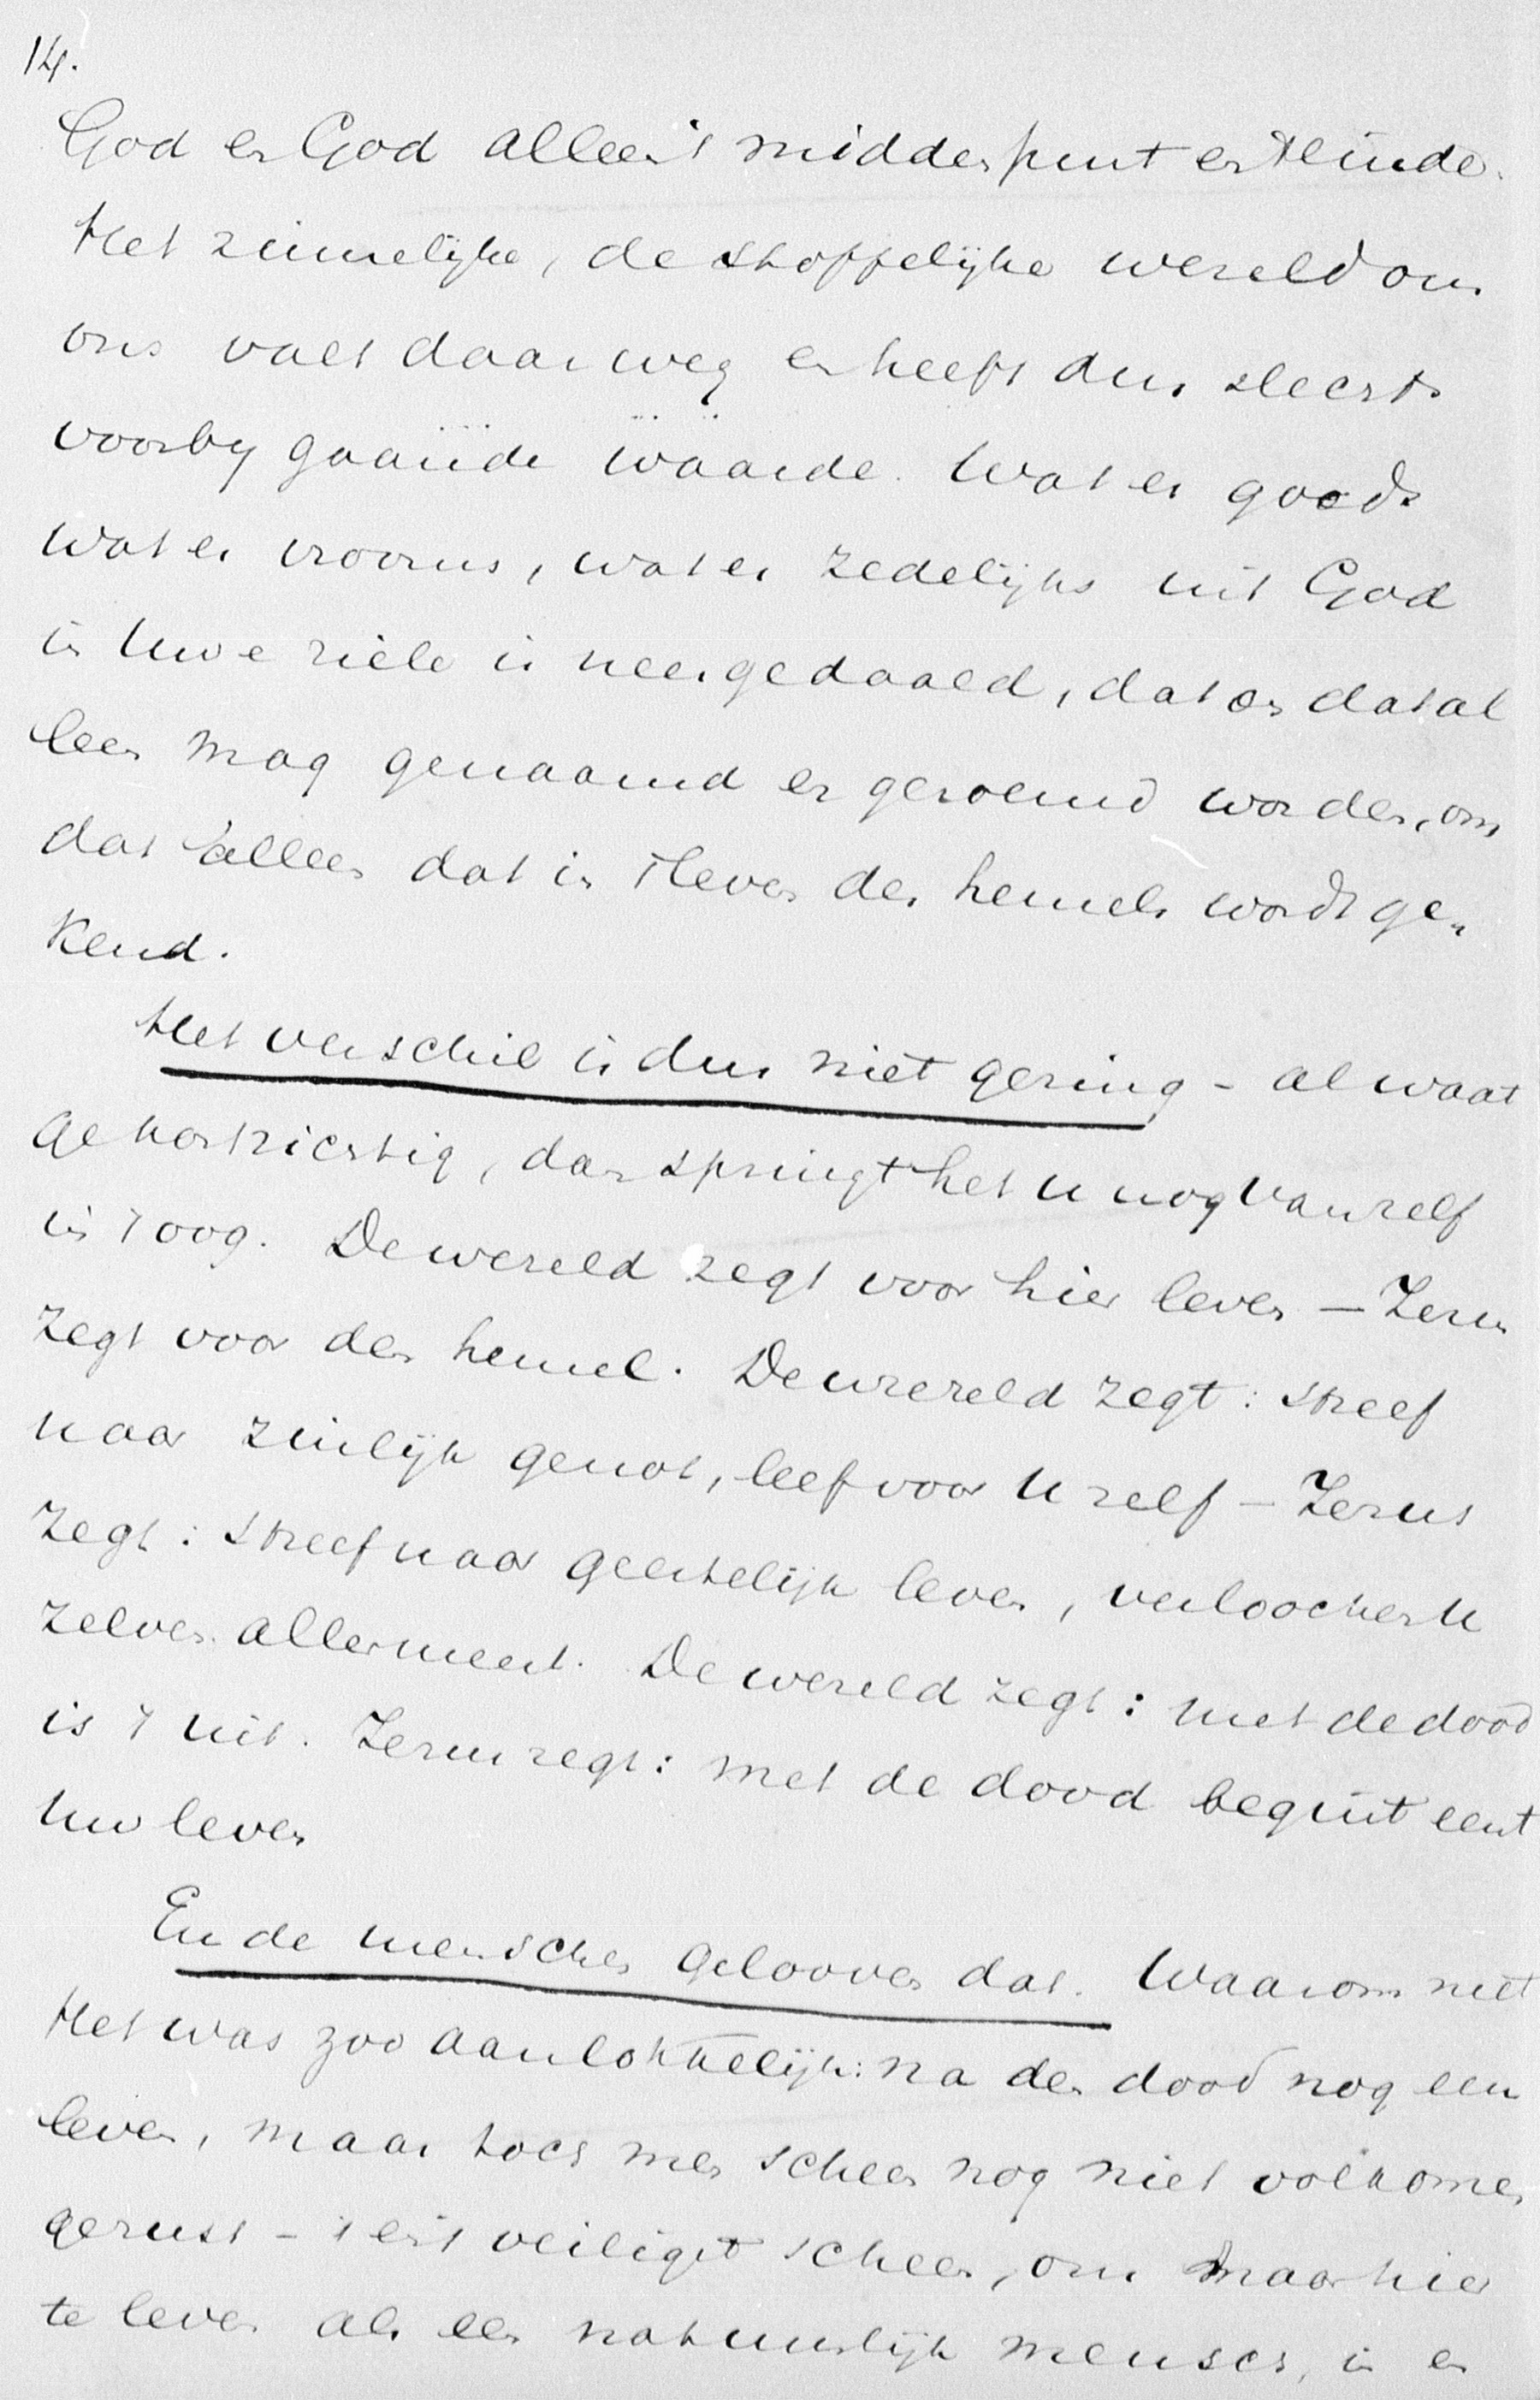 14.
God en God alleen 't middenpunt en 't einde.
Het zinnelijke, de stoffelijke wereld om
ons valt daar weg en heeft dus slechts
voorbij gaande waarde. Wat er goeds
wat er vrooms, wat er zedelijks uit God
in Uwe ziele is neergedaald, dat en dat al
leen mag genaamd en geroemd worden, om
dat alleen dat in 't leven des hemels wordt ge„
kend.
Het verschil is dus niet gering - al waart
ge kortzichtig, dan springt het u nog van zelf
in 't oog. De wereld zegt voor hier leven — Jezus
zegt voor den hemel. De wereld zegt: streef
naar zinlijk genot, leef voor U zelf — Jezus
zegt: streef naar geestelijk leven, verloochen U
zelven allermeest. De wereld zegt: met de dood
is 't uit. Jezus zegt: met de dood begint eerst
Uw leven
En de menschen gelooven dat. Waarom niet
Het was zoo aanlokkelijk: na den dood nog een
leven, maar toch men scheen nog niet volkomen
gerust - 't eerst veiligst scheen, om maar hier
te leven als een natuurlijk mensch, in en